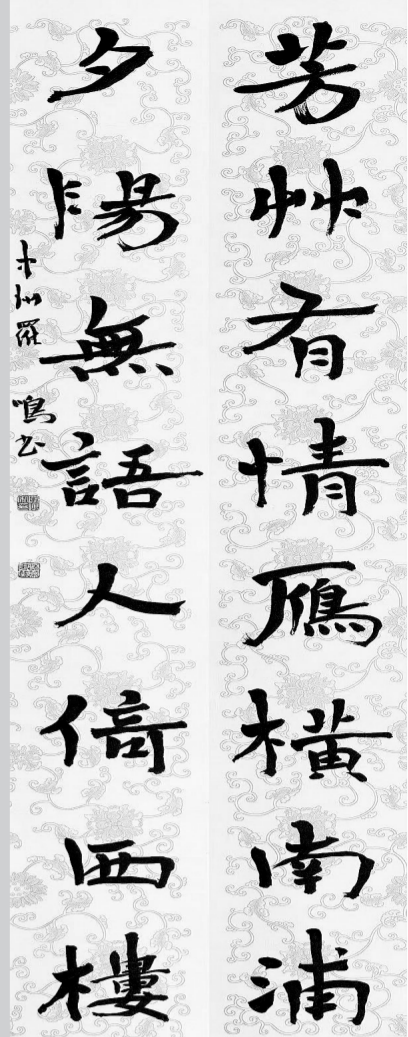 芳艸有情鴈橫南浦
夕陽無語人倚西樓
羅鳴書